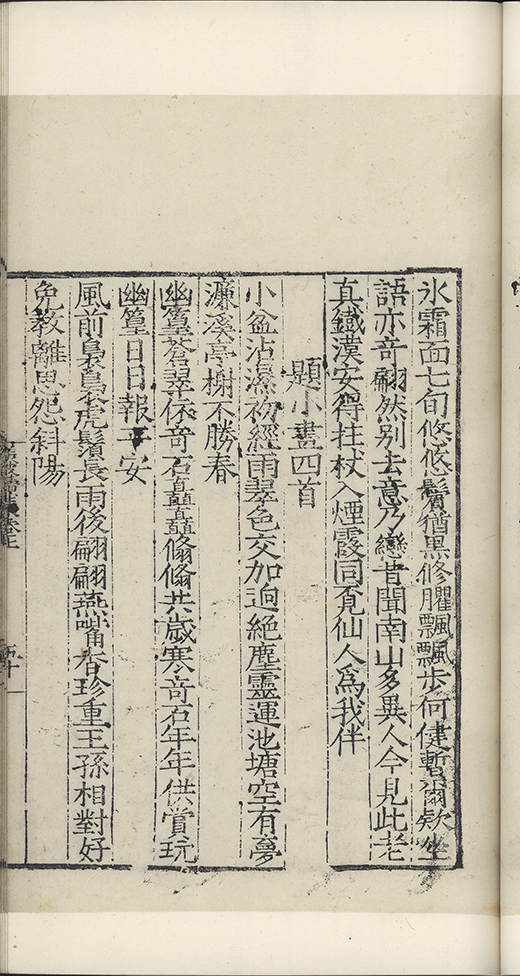 氷霜面七旬悠悠鬢猶黒修臞飄飄歩何健暫爾欵坐
語亦竒翩然别去意乃戀昔聞南山多異人今見此老
真鐡漢安得拄杖入煙霞同覔仙人爲我伴
題小畫四首
小盆沾濕初經雨翠色交加迥絶塵靈運池塘空有夢
濂溪亭榭不勝春
幽篁蒼翠依竒石矗矗翛翛共歳寒竒石年年供賞玩
幽篁日日報平安
風前裊裊虎鬚長雨後翩翩燕嘴香珍重王孫相對好
免教離思怨斜陽
五十